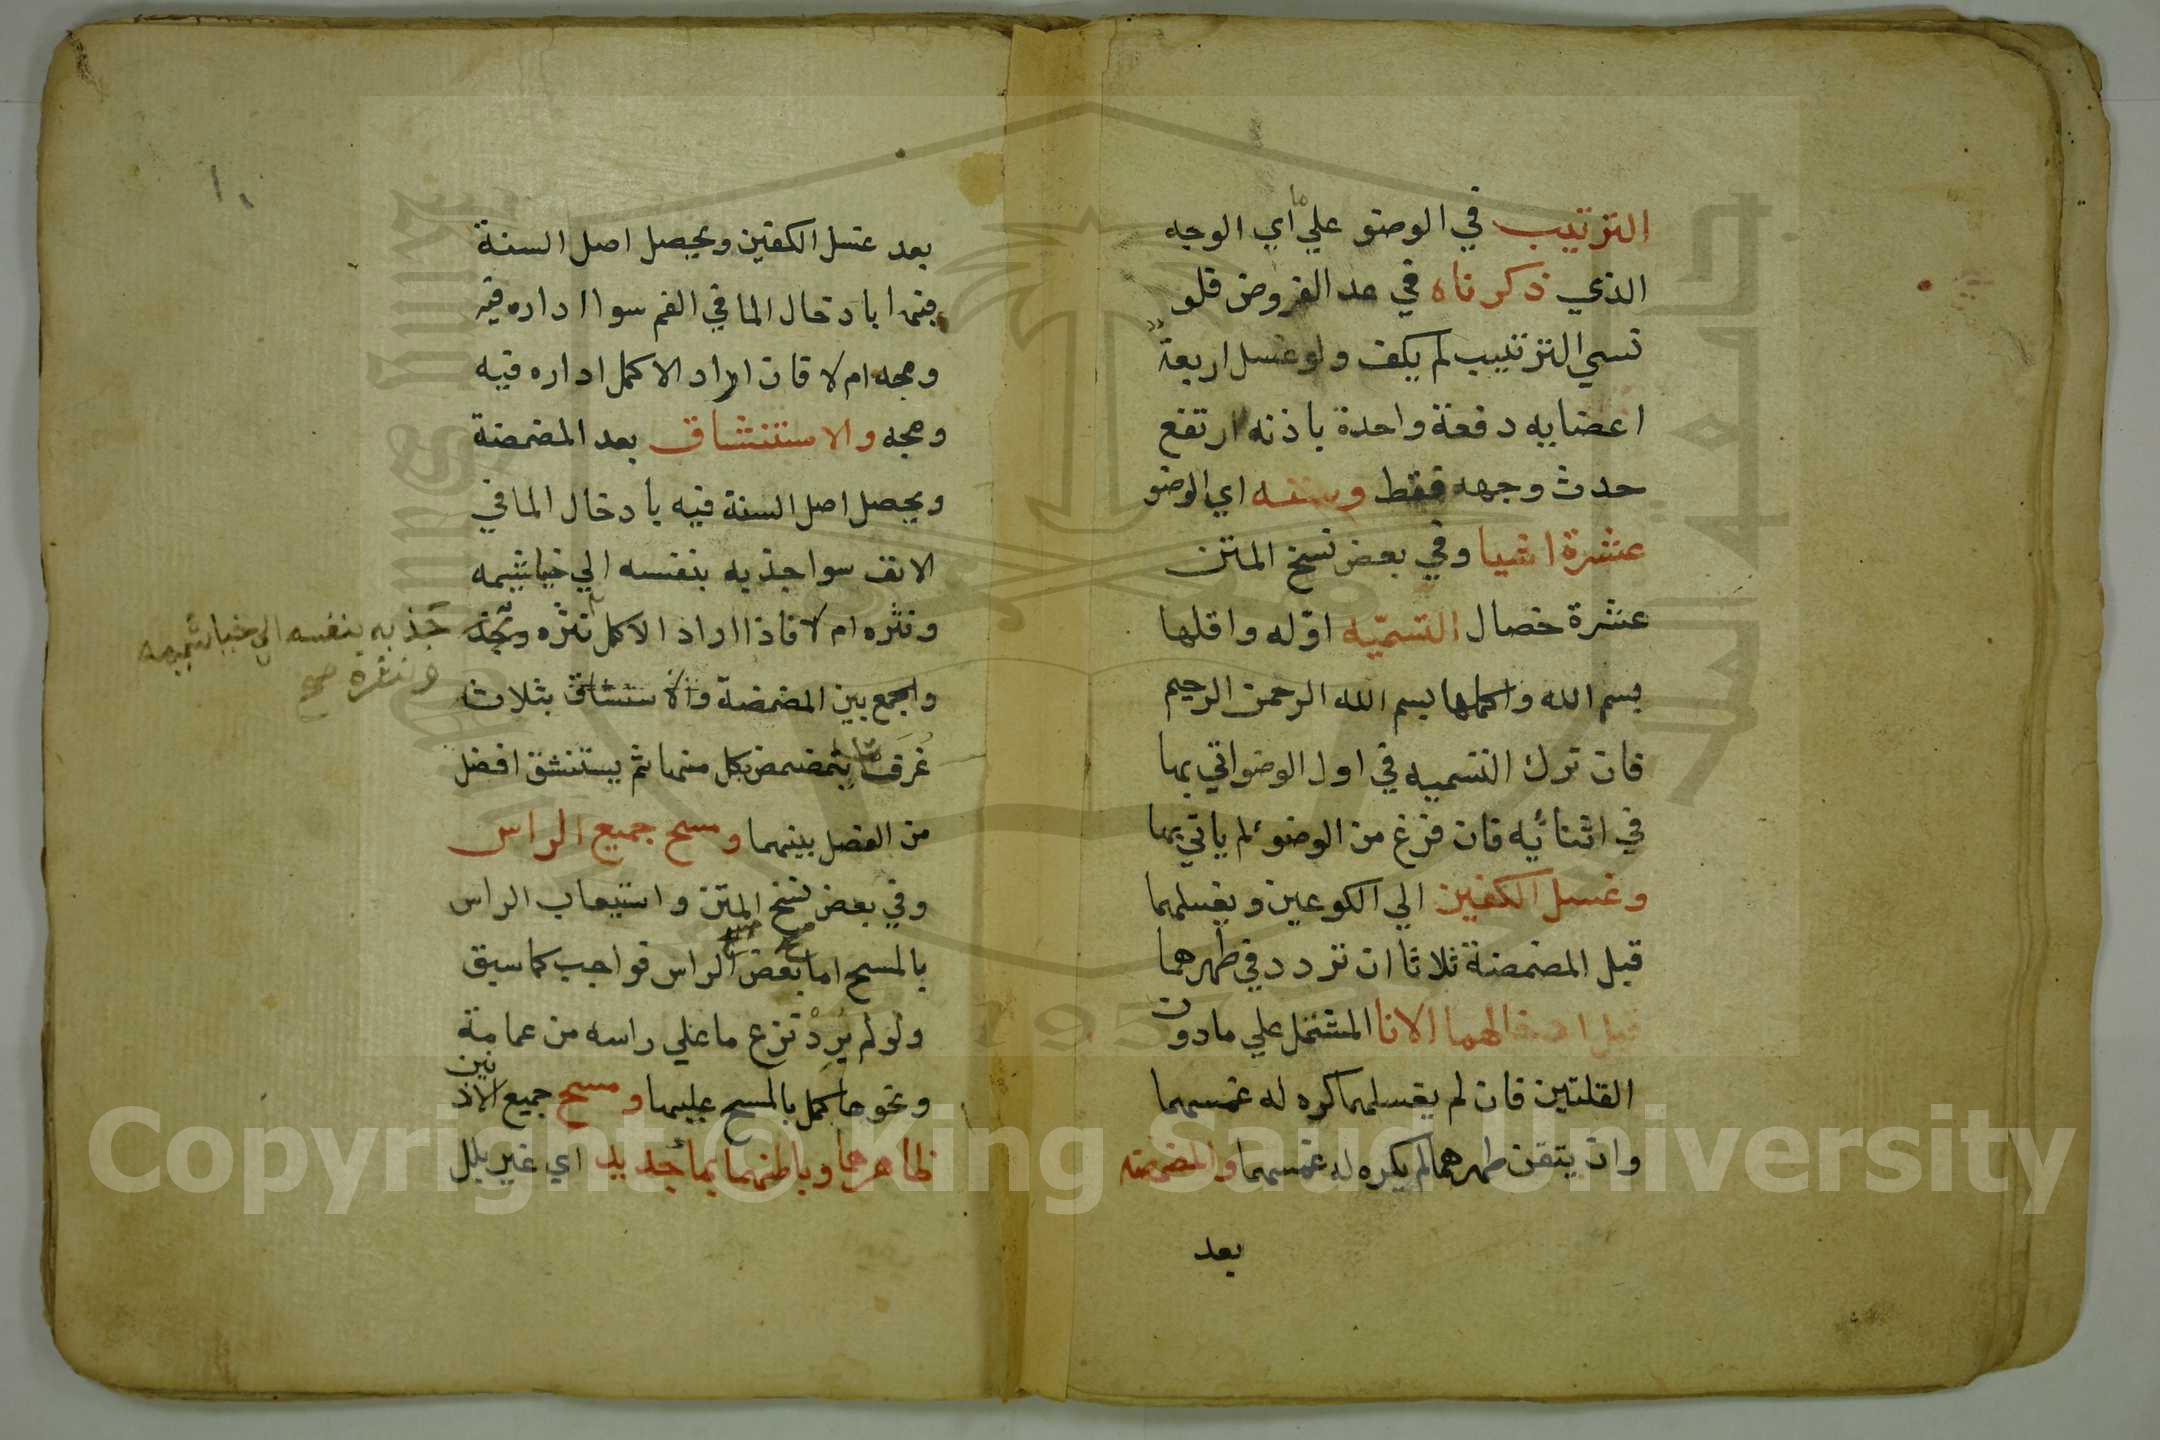 الترتيب في الوضو علي ما اي الوجه
الذي ذكرناه في عد الفروض فلو
نسي الترتيب لم يكف ولو غسل اربعة
اعضايه دفعة واحدة باذنه ارتفع
حدث وجهه فقط وسننه اي الوضو
عشرة اشيا وفي بعض نسخ المتن
عشرة خصال التسميه اوله واقلها
بسم الله واكملها بسم الله الرحمن الرحيم
فان ترك التسميه في اول الوضو اتي بها
في اثنائيه فان فرغ من الوضوء لم ياتي بها
وغسل الكفين الي الكوعين ويغسلهما
قبل المضمضة ثلاثا ان تردد في طهرهما
قبل ادخالهما الانا المشتمل علي مادون
القلتين فان لم يغسلهما كره له غمسهما
وان يتقن طهرهما لم يكره له غمسهما والمضمضه
بعد
١٠
بعد غسل الكفين ويحصل اصل السنة
فيها بادخال الما في الفم سوا اداره فيه
ومجه ام لا فان اراد الاكمل اداره فيه
ومجه والاستنشاق بعد المضمضة
ويحصل اصل السنة فيه بادخال الما في
الانف سوا جذبه بنفسه الي خياشيمه
ونثره ام لا فاذا اراد الاكمل نثره
جذبه بنفسه الي خياشيمه
ونثره صح
والجمع بين المضمضة والاستنشاق بثلاث
غرف يتمضمض بكل منها ثم يستنشق افضل
من الفصل بينهما ومسح جميع الراس
وفي بعض نسخ المتن واستيعاب الراس
بالمسح اما مسح بعض الراس فواجب كما سبق
ولو لم يرد نزع ما علي راسه من عمامة
ونحوها كمل بالمسح عليها ومسح جميع الاذنين
ظاهرهما وباطنهما بماء جديد اي غير بلل
Copyright © King Saud University
1957